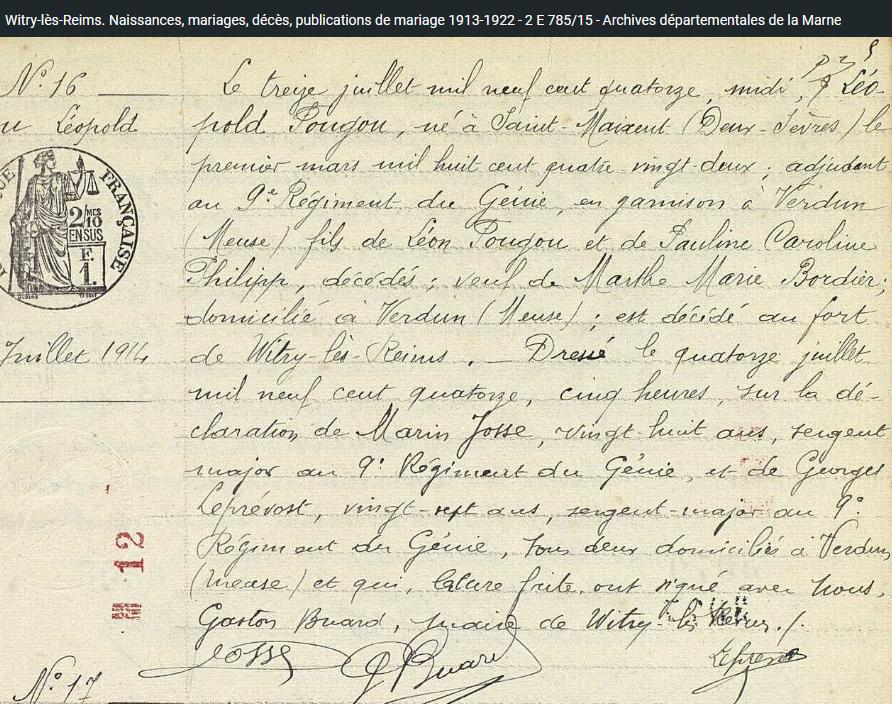 Witry-lès-Reims. Naissances, mariages, décès, publications de mariage 1913-1922 - 2 E 785/15 - Archives départementales de la Marne
N° 16
Le treize juillet mil neuf cent quatorze, midi, Léo-
u Léopold
pold Pougou, né à Saint-Maixent (Deux-Sèvres) le
premier mars mil huit cent quatre-vingt-deux ; adjudant
au 9e Régiment du Génie, en garnison à Verdun
(Meuse) fils de Léon Pougou et de Pauline Caroline
Philipp, décédés ; veuf de Marthe Marie Bordier ;
domicilié à Verdun (Meuse) ; est décédé au fort
de Witry-lès-Reims. — Dressé le quatorze juillet
Juillet 1914
mil neuf cent quatorze, cinq heures, sur la dé-
claration de Marin Josse, vingt-huit ans, sergent
major au 9e Régiment du Génie, et de Georges
Leprévost, vingt-sept ans, sergent-major au 9e
Régiment du Génie, tous deux domiciliés à Verdun
(Meuse) et qui, lecture faite, ont signé avec Nous,
Gaston Buard, maire de Witry-lès-Reims ./.
FRANÇAISE
2/10 MES
EN SUS
F.
1.
12
Josse
G Buard
Leprevost
N° 17